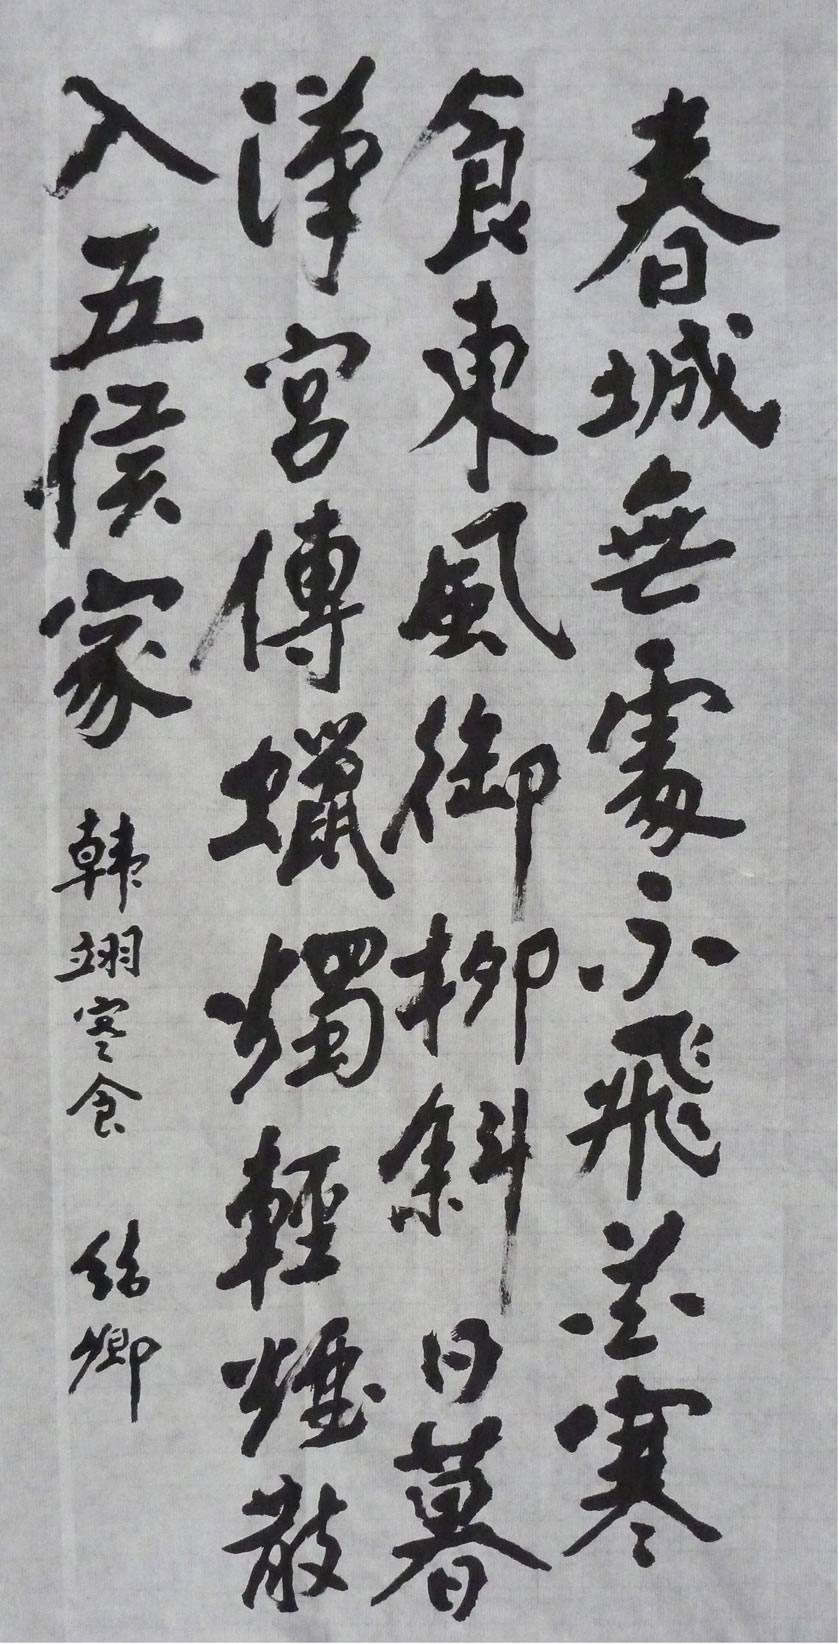 春城無處不飛花寒
食東風御柳斜日暮
漢宮傳蠟燭輕煙散
入五侯家
韩翊寒食
卿